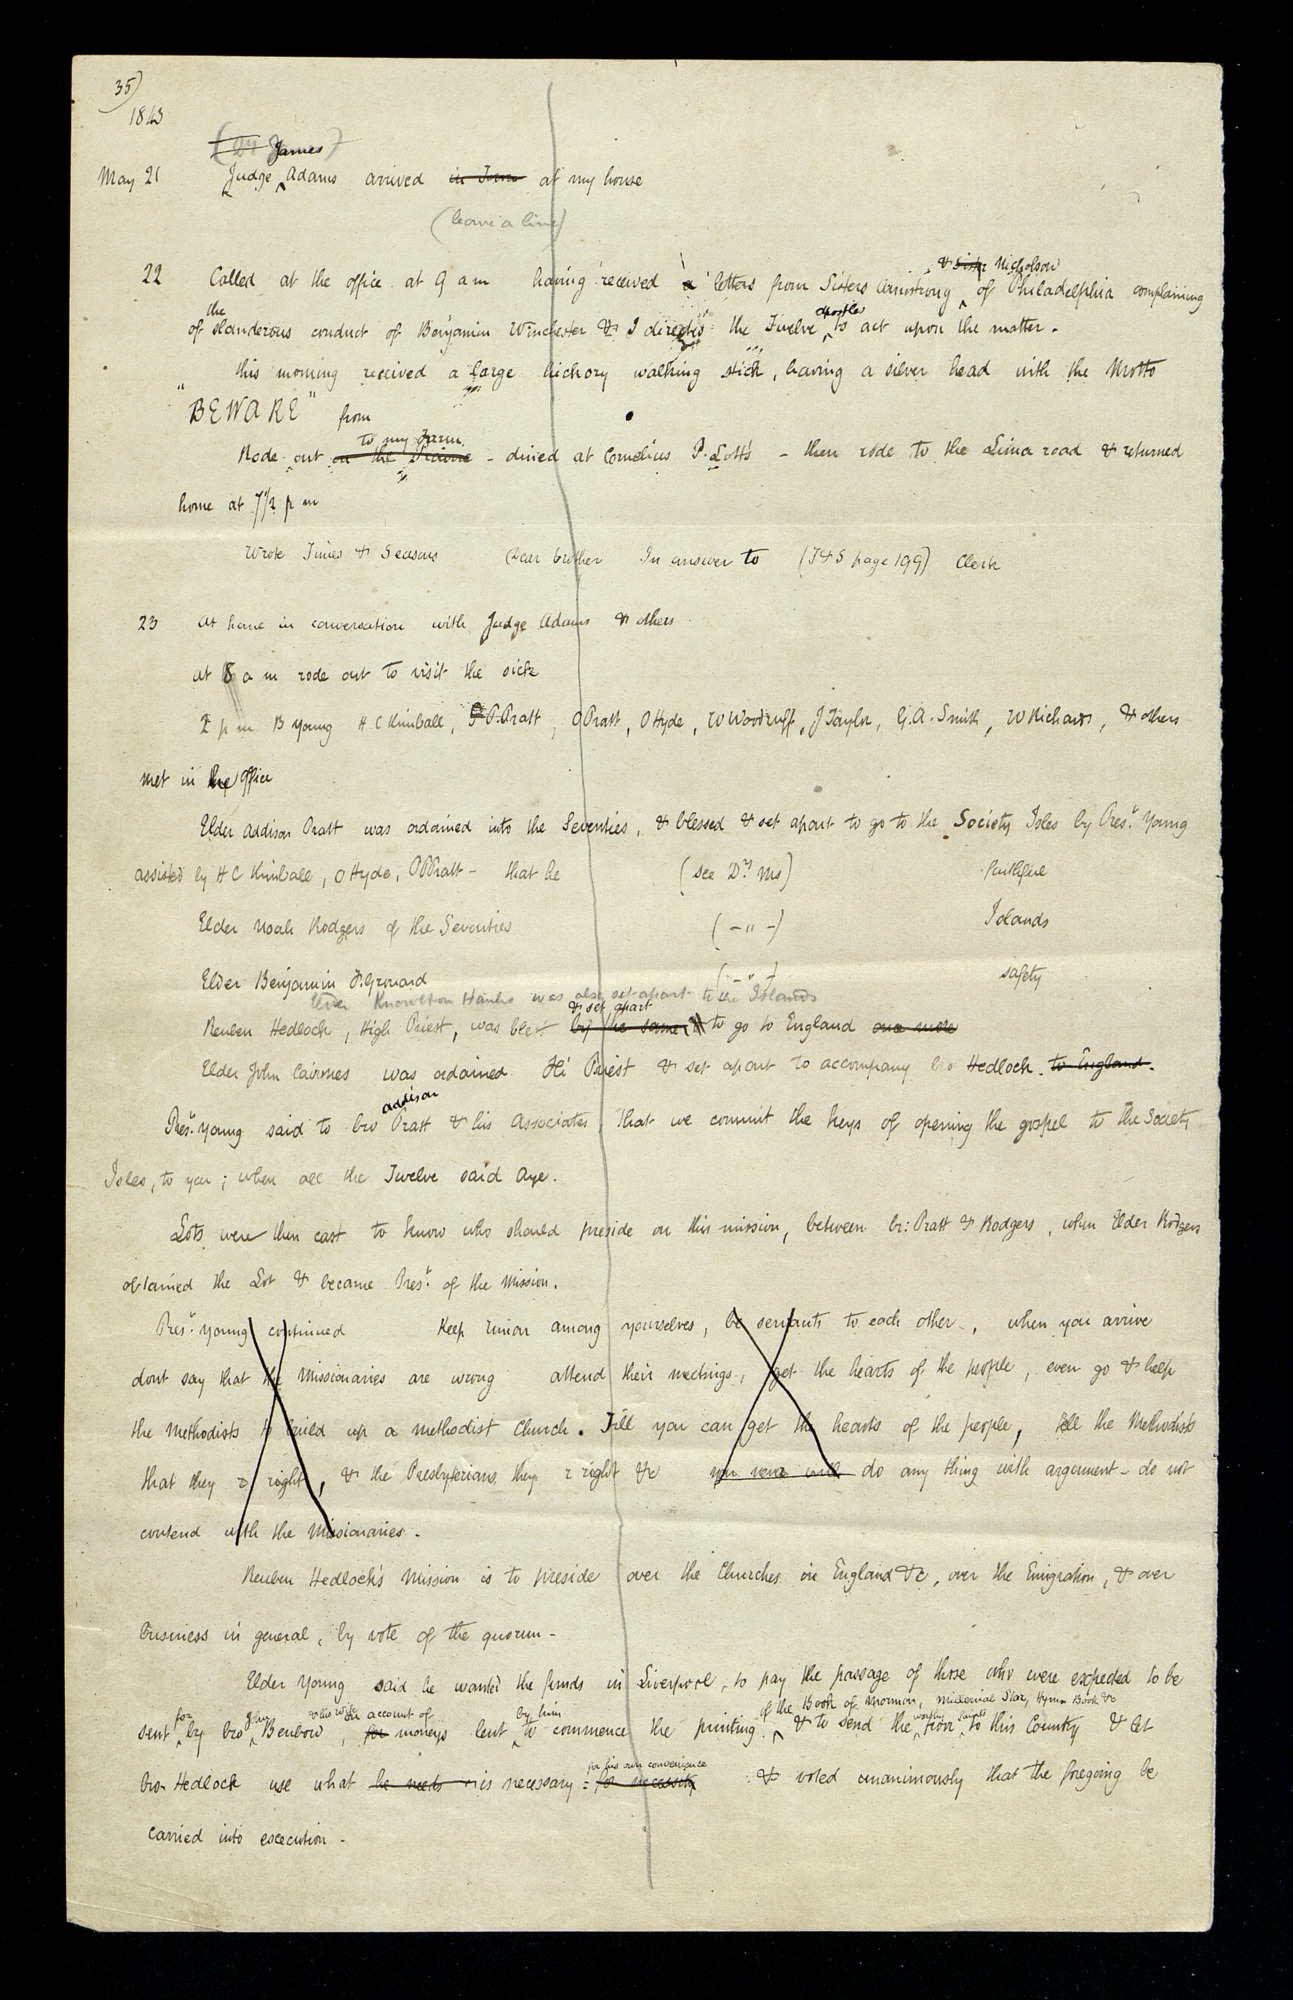 35)
1843
James
May 21 Judge Adams arrived in Town at my house
(leave a line)
& Sister Nicholson
22 Called at the office at 9 a m having received a letters from Sisters Armstrong of Philadelphia complaining
the apostles
of slanderous conduct of Benjamin Winchester & I directed the Twelve to act upon the matter.
this morning received a large hickory walking stick, having a silver head with the Motto
"BEWARE" from
to my Farm
Rode out on the Prairie - dined at Cornelius P. Lott's - then rode to the Lima road & returned
home at 7½ p m
Wrote Times & Seasons Dear brother In answer to (T&S page 199) Clerk
23 at home in conversation with Judge Adams & others
at 8 a m rode out to visit the sick
2 p m B Young H C Kimball, P. Pratt, O Pratt, O Hyde, W Woodruff, J Taylor, G. A. Smith, W Richards, & others
met in the office
Elder Addison Pratt was ordained into the Seventies, & blessed & set apart to go to the Society Isles by Prest. Young
assisted by H C Kimball, O Hyde, P P Pratt - that he (see Dr's Ms) faithful
Elder Noah Rodgers of the Seventies (- " -) Islands
Elder Benjamin F. Grouard (- " -) safety
Elder Knowlton Hanks was also set apart to the Islands
& set apart
Reuben Hedlock, High Priest, was blest by the same & to go to England once more
Elder John Cairnes was ordained Hi Priest & set apart to accompany bro Hedlock. to England.
addison
Prest. Young said to bro Pratt & his associates, that we commit the keys of opening the gospel to the Society
Isles, to you; when all the Twelve said Aye.
Lots were then cast to know who should preside on this mission, between br: Pratt & Rodgers, when Elder Rodgers
obtained the Lot & became Prest. of the Mission.
Prest. Young continued Keep Union among yourselves, be servants to each other, when you arrive
dont say that the Missionaries are wrong attend their meetings, get the hearts of the people, even go & help
the Methodists to build up a methodist Church. Till you can get the hearts of the people, tell the Methodists
that they r right, & the Presbyterians they r right &c you never will do any thing with argument - do not
contend with the Missionaries.
Reuben Hedlock's Mission is to preside over the Churches in England &c, over the Emigration, & over
business in general, by vote of the quorum -
Elder Young said he wanted the funds in Liverpool, to pay the passage of those who were expected to be
of the Book of Mormon, Millenial Star, Hymn Book &c
for Jno & his wife on account of by him worthy saints
sent by bro Benbow, for moneys lent to commence the printing & to send the poor to this Country & let
for his own convenience
bro- Hedlock use what he needs is necessary = for necessity & voted unanimously that the foregoing be
carried into execution -